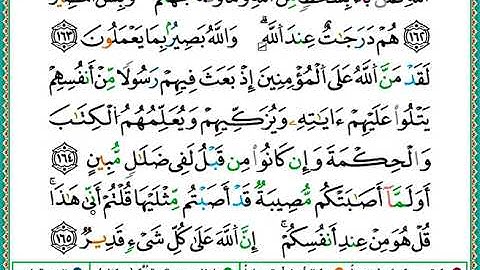 هُمْ دَرَجَٰتٌ عِندَ ٱللَّهِ ۗ وَٱللَّهُ بَصِيرٌۢ بِمَا يَعْمَلُونَ ﴿١٦٣﴾
لَقَدْ مَنَّ ٱللَّهُ عَلَى ٱلْمُؤْمِنِينَ إِذْ بَعَثَ فِيهِمْ رَسُولًا مِّنْ أَنفُسِهِمْ
يَتْلُوا۟ عَلَيْهِمْ ءَايَٰتِهِۦ وَيُزَكِّيهِمْ وَيُعَلِّمُهُمُ ٱلْكِتَٰبَ
وَٱلْحِكْمَةَ وَإِن كَانُوا۟ مِن قَبْلُ لَفِى ضَلَٰلٍ مُّبِينٍ ﴿١٦٤﴾
أَوَلَمَّآ أَصَٰبَتْكُم مُّصِيبَةٌ قَدْ أَصَبْتُم مِّثْلَيْهَا قُلْتُمْ أَنَّىٰ هَٰذَا ۖ
قُلْ هُوَ مِنْ عِندِ أَنفُسِكُمْ ۗ إِنَّ ٱللَّهَ عَلَىٰ كُلِّ شَىْءٍ قَدِيرٌ ﴿١٦٥﴾